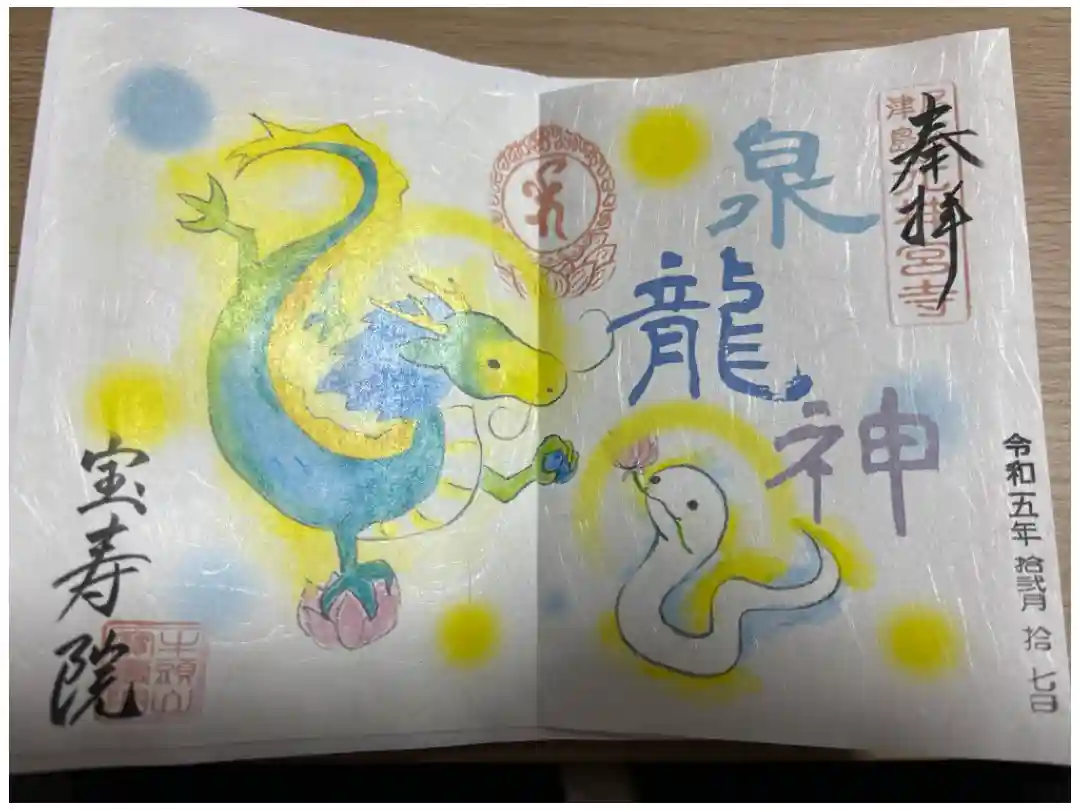 奉拝
津島
宮寺
泉
龍
神
令和五年 拾弐月 拾七日
宝寿院
牛頭山